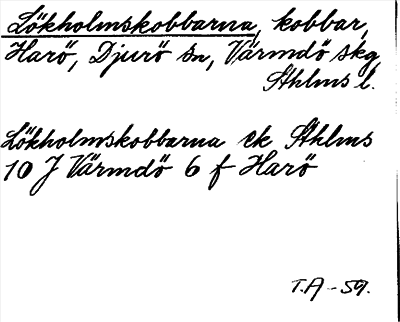 Lökholmskobbarna, kobbar,
Harö, Djurö sn, Värmdö skg,
Sthlms l.
Lökholmskobbarna ek Sthlms
10 J Värmdö 6 f Harö
T.A -59.